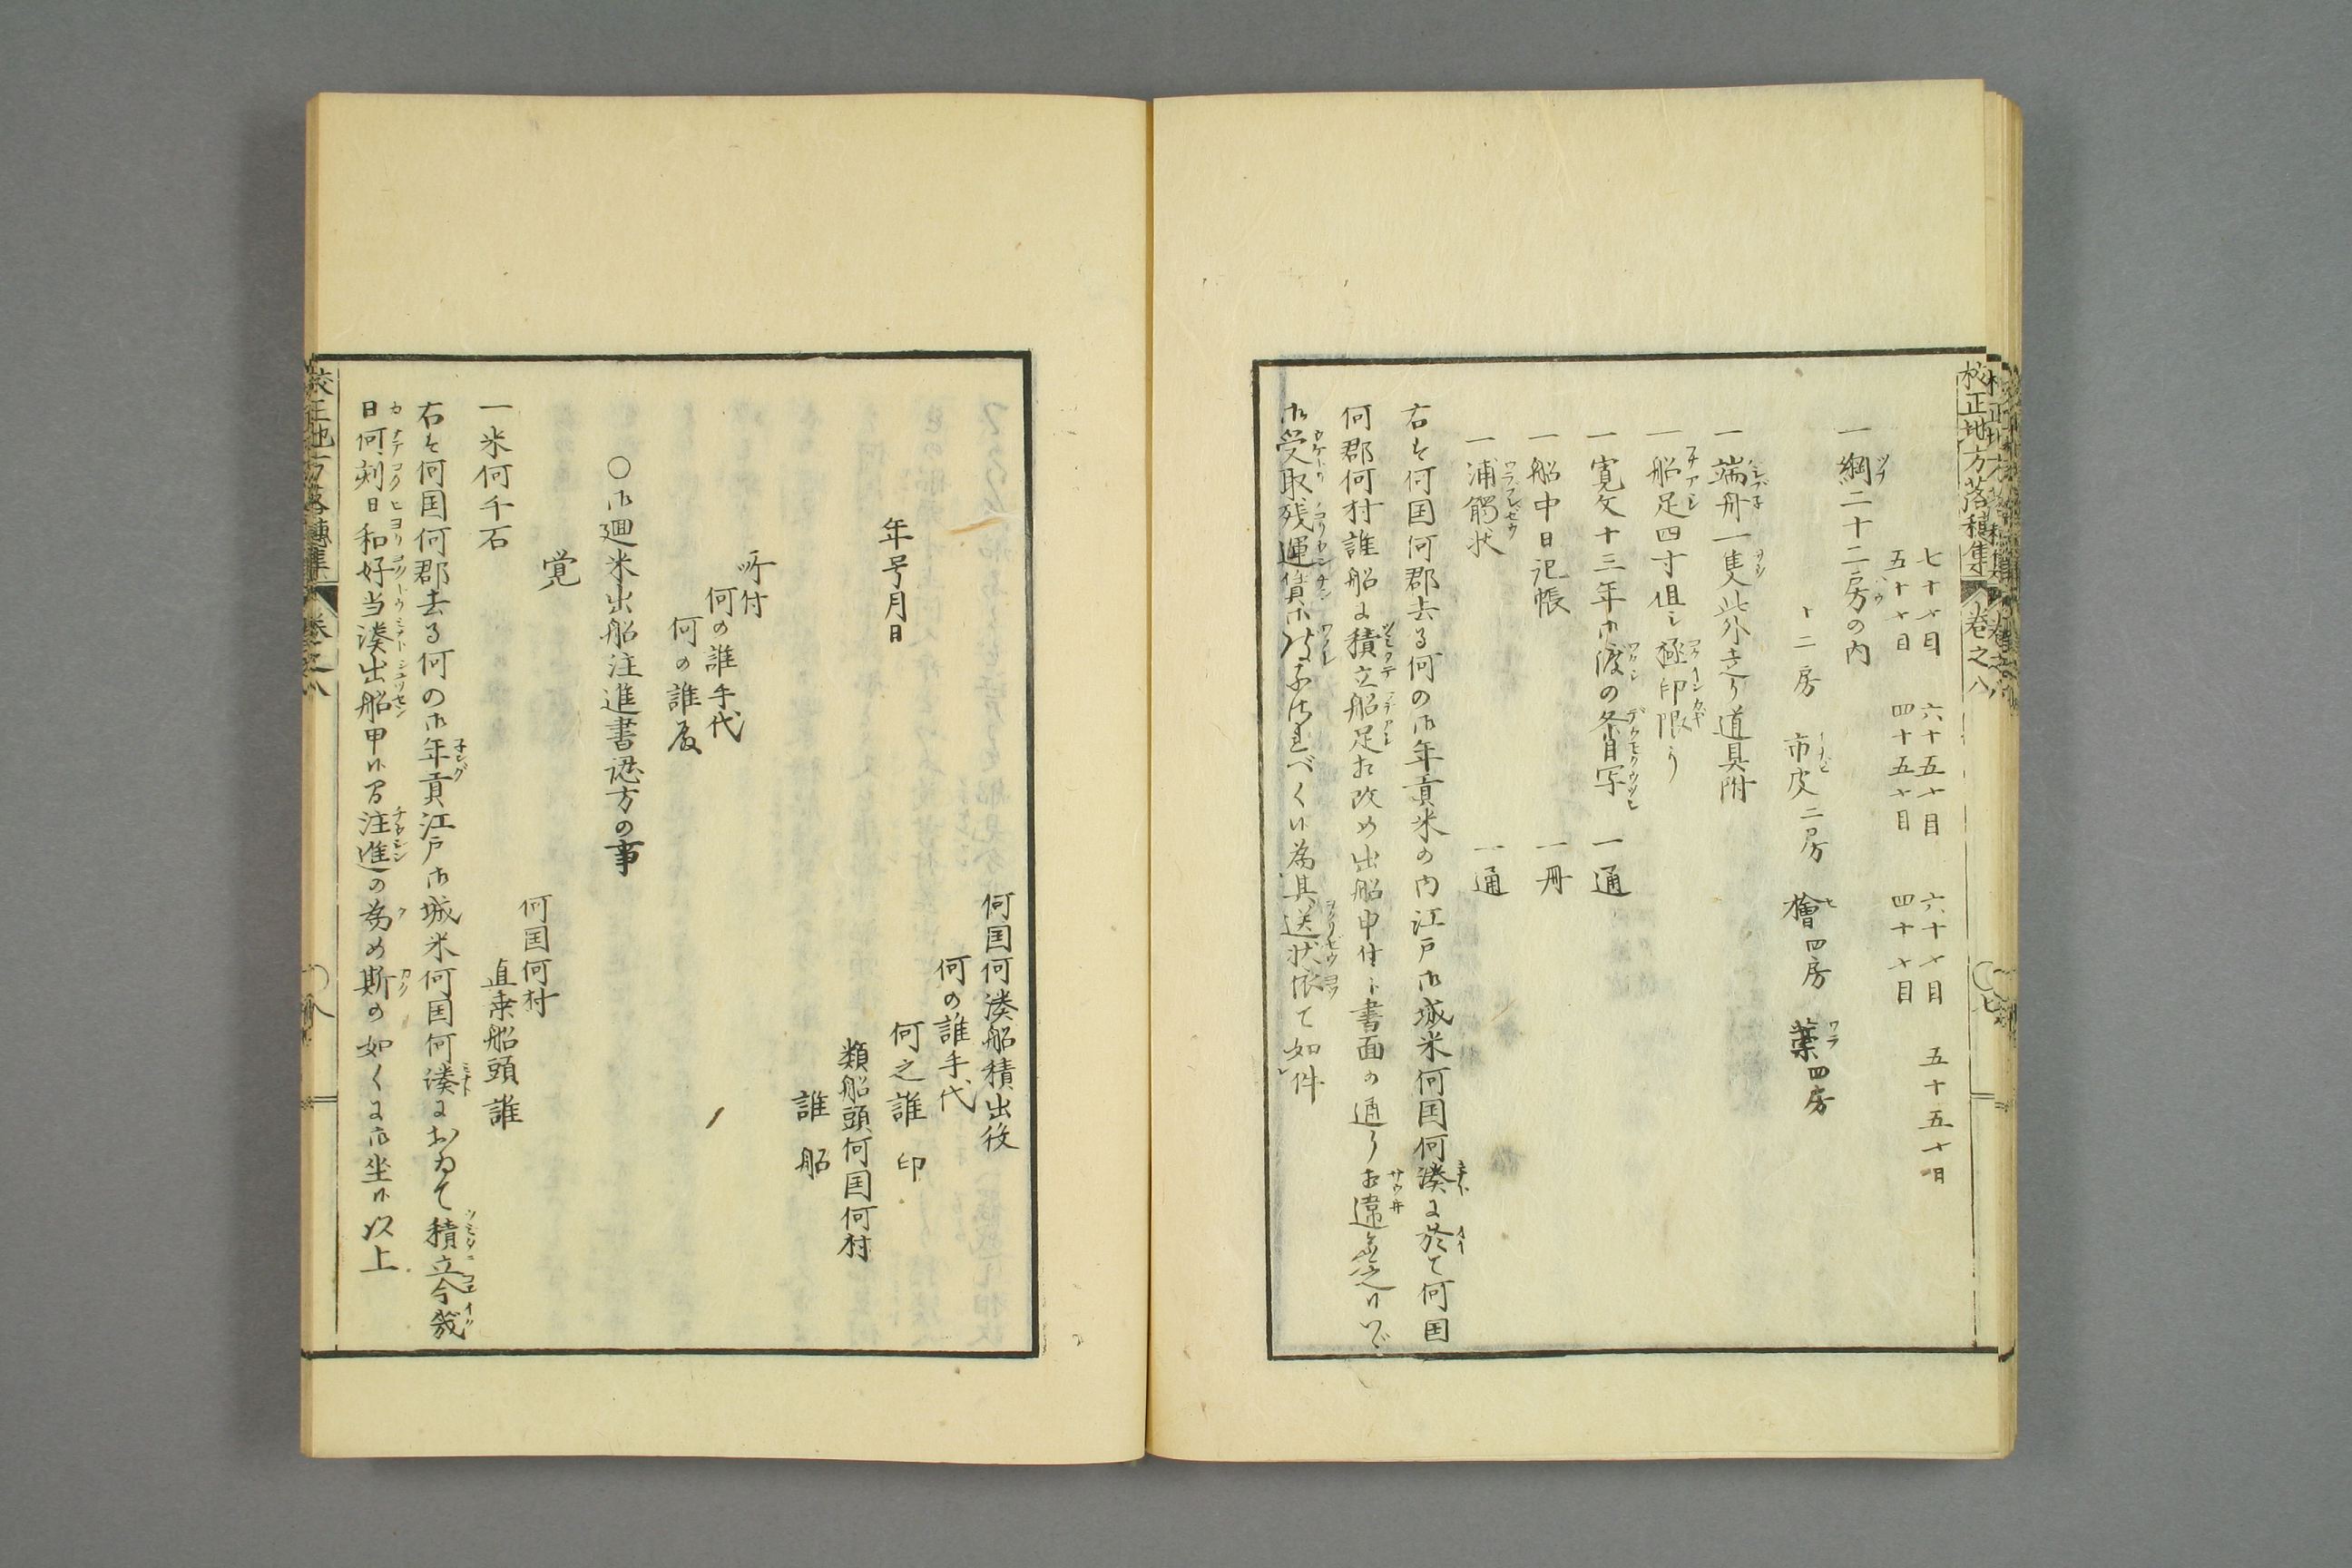 校正地方落穂集
巻之八
七十〆目　六十五〆目　六十〆目　五十五〆目
五十〆目　四十五〆目　四十〆目
一綱二十二房の内
十二房　市皮二房　檜四房　藁四房
一端舟一隻此外走り道具附
一船足四寸但シ極印限り
一寛文十三年御渡の条目写　一通
一船中日記帳　一冊
一浦触状　一通
右は何国何郡去る何の御年貢米の内江戸御城米何国何湊に於て何国
何郡何村誰船に積立船足相改め出船申付候書面の通り相違無之候ハヾ
御受取残運賃御渡し下さるべく候為其送状依て如件
何国何湊船積出役
何の誰手代
何之誰　印
類船頭何国何村
誰船
年号月日
所付
何の誰手代
何の誰殿
○御廻米出船注進書認方の事
覚
一米何千石
何国何村
直乗船頭誰
右は何国何郡去る何の御年貢江戸御城米何国何湊におゐて積立今幾
日何刻日和好当湊出船申候間注進の為め斯の如くに御坐候以上
校正地方落穂集
巻之八